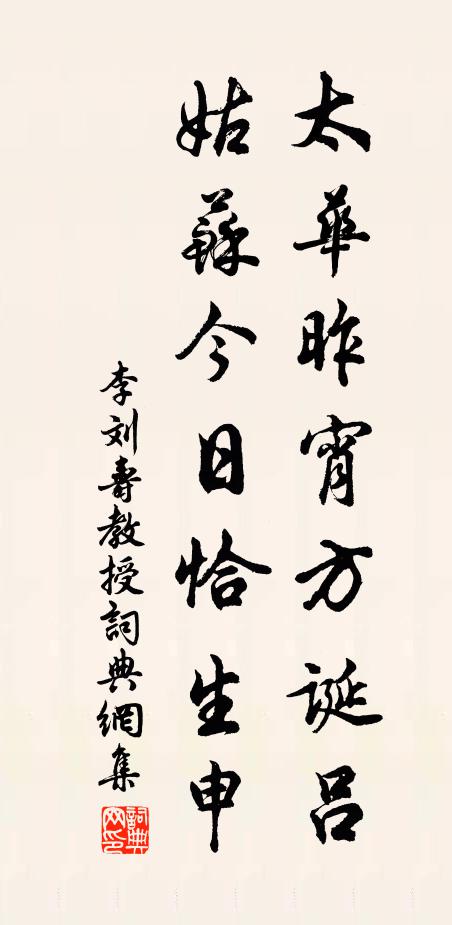 太華昨宵方誕吕
姑蘇今日恰生申
李刘壽教授詞典網集
詞典網印